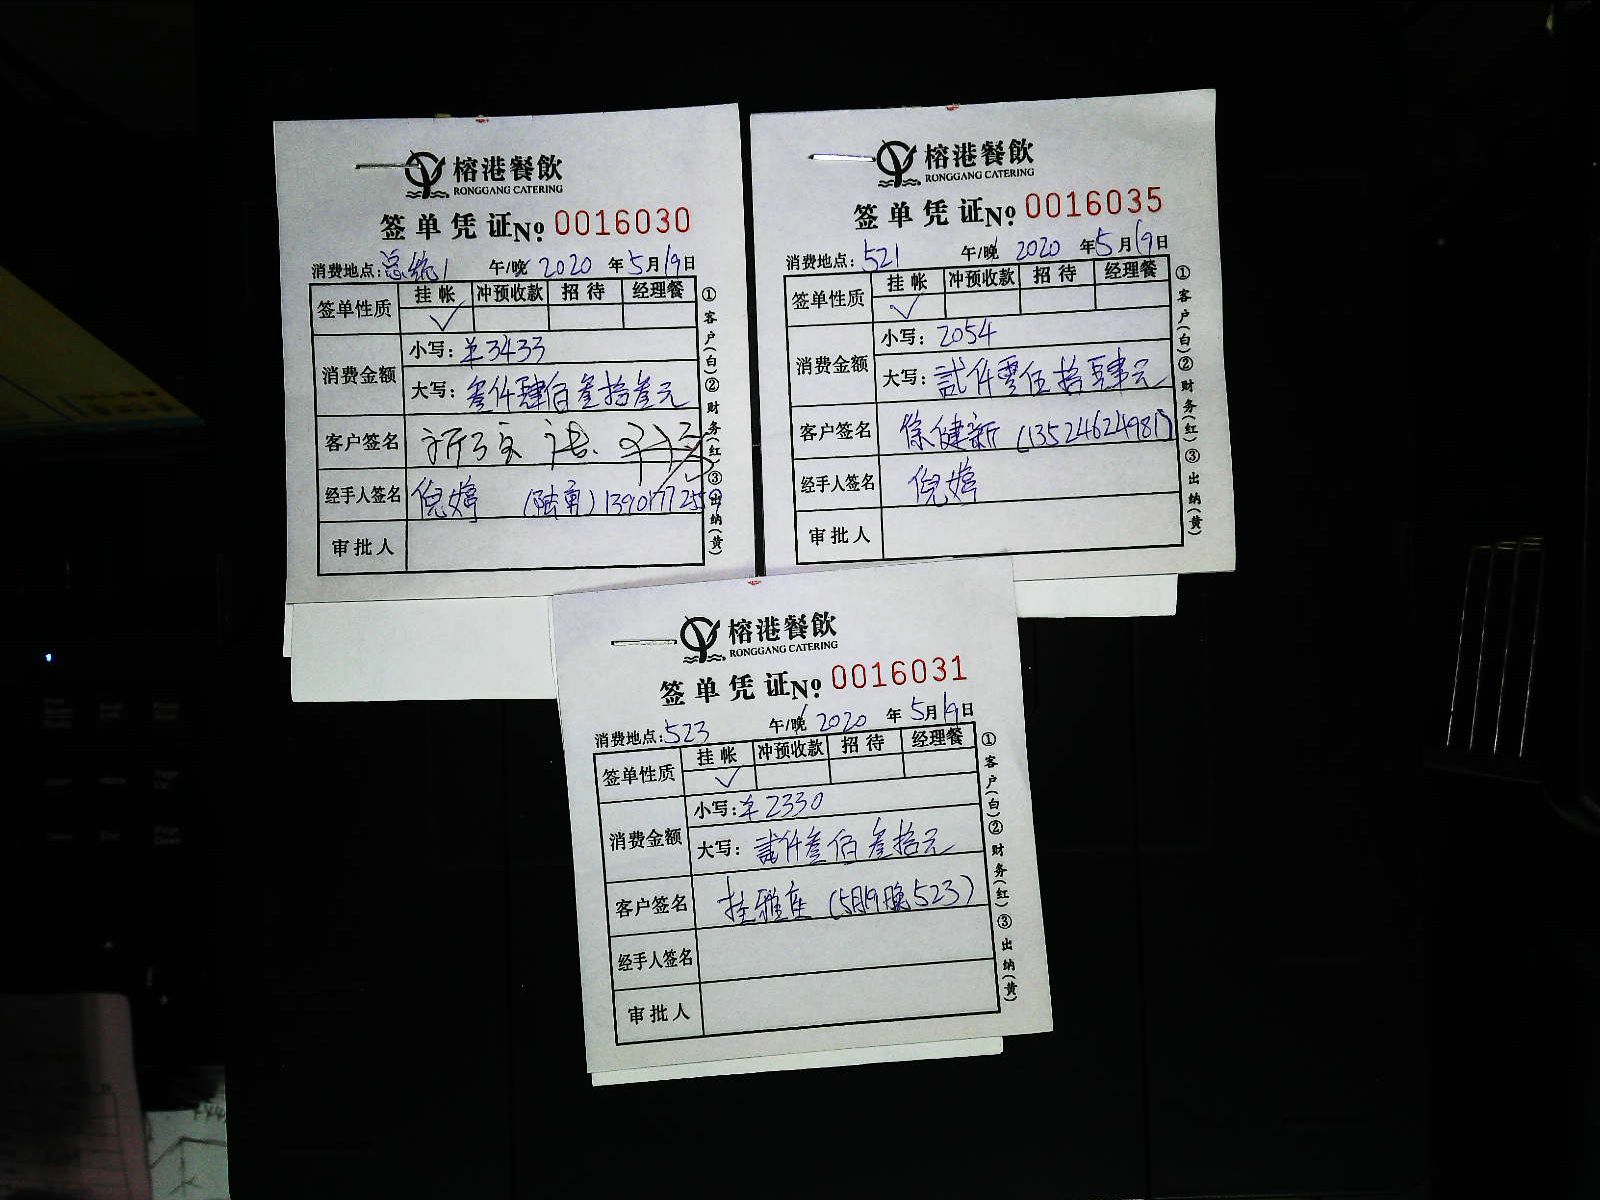 榕港餐飲
RONGGANG CATERING
签单凭证No. 0016030
消费地点:总统1 午/晚 2020 年5月19日
签单性质 挂帐 冲预收款 招待 经理餐
✓
消费金额
小写:¥3433
大写:叁仟肆佰叁拾叁元
客户签名
经手人签名 倪婷 (陆勇)
审批人
①客户(白)②财务(红)③出纳(黄)
榕港餐飲
RONGGANG CATERING
签单凭证No. 0016035
消费地点:521 午/晚 2020 年5月19日
签单性质 挂帐 冲预收款 招待 经理餐
✓
消费金额
小写:2054
大写:贰仟零伍拾肆元
客户签名 徐健新 (13524624981)
经手人签名 倪婷
审批人
①客户(白)②财务(红)③出纳(黄)
榕港餐飲
RONGGANG CATERING
签单凭证No. 0016031
消费地点:523 午/晚 2020 年5月19日
签单性质 挂帐 冲预收款 招待 经理餐
✓
消费金额
小写:¥2330
大写:贰仟叁佰叁拾元
客户签名 挂雅座 (5月19晚523)
经手人签名
审批人
①客户(白)②财务(红)③出纳(黄)